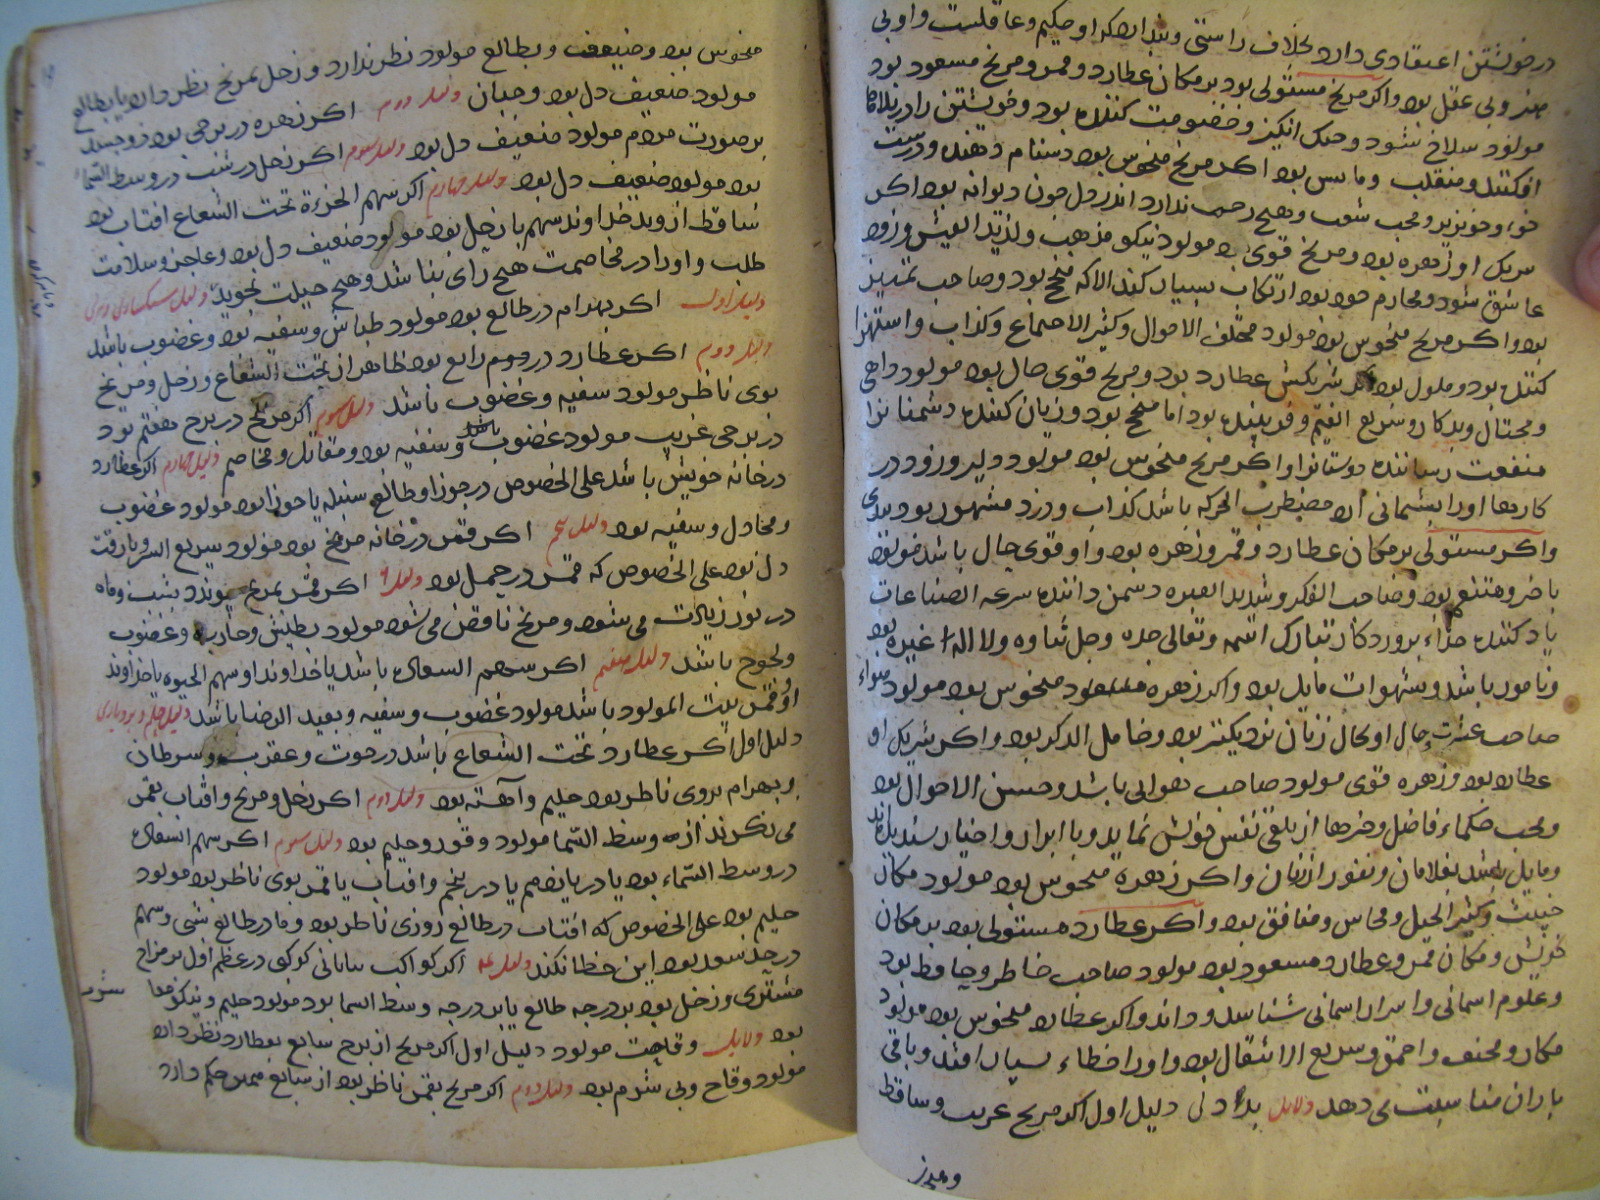 در خویشتن اعتقادی دارد بخلاف راستی و پندارد که او حکیم و عاقلست و او بی
هنر و بی عقل بود و اکر مریخ مستولی بود بر مکان عطارد و قمر و مریخ مسعود بود
مولود سلاح شود و جنک انکیز و خصومت کننده بود و خویشتن را در بلاها
افکند و منقلب بود اکر مریخ منحوس بود دشنام دهنده و درشت
خوی و خونریز و محب شغب و هیچ رحمت ندارد اندر دل چون دیوانه بود اکر
شریک او زهره بود و مریخ قوی بود مولود نیکو مذهب و لذیذ العیش و زود
عاشق شود و محارم خود بود ارتکاب بسیار کند الا که منجح بود و صاحب تمییز
بود و اکر مریخ منحوس بود مولود مختلف الاحوال و کثیر الاجتماع و کذاب و استهزا
کننده بود و ملول بود اکر شریکش عطارد بود و مریخ قوی حال بود مولود داهی
و محتال و بدکار و سریع الفهم و فریبنده بود اما منجح بود و زیان کننده دشمنانرا
منفعت رساننده دوستانرا و اکر مریخ منحوس بود مولود دلیر و زود در
کارها او را پشیمانی آید مضطرب الحرکه باشد کذاب و دزد مشهور بود ببدی
و اکر مستولی بر مکان عطارد و قمر زهره بود و او قوی حال باشد مولود
با خیر و متنعم بود و صاحب الفکر و شدید الغیره دشمن داننده سرعه الصناعات
یاد کننده خدای پروردکار تبارک اسمه و تعالی جده و جل ثناوه و لا اله غیره بود
و نامور باشد و بشهوات مایل بود و اکر زهره منحوس بود مولود
صاحب عشرت و حال او بحال زنان نزدیکتر بود و خامل الذکر بود و اکر شریک او
عطارد بود و زهره قوی مولود صاحب هوایی باشد و حسن الاحوال بود
و محب حکماء فاضل و هنرها از تلقی نفس خویش نماید و با ابرار و اخیار
و مایل باشد بغلامان و نفور از زنان و اکر زهره منحوس بود مولود مکار
خبیث و کثیر الحیل و منافق بود و اکر عطارد مستولی بود بر مکان
خویش و مکان قمر و عطارد مسعود بود مولود صاحب خاطر و حافظ بود
و علوم اسمانی و اسرار اسمانی شناسد و داند و اکر عطارد منحوس بود مولود
مکار و احمق و سریع الانتقال بود و او را خطاء بسیار افتد و باقی
باران مناسبت می دهد دلایل بددلی دلیل اول اکر مریخ غریب و ساقط
منحوس بود و ضعیف و بطالع مولود نظر ندارد و زحل بمریخ نظر دارد یا بطالع
مولود ضعیف دل بود و جبان دلیل دوم اکر زهره در برجی بود ذو جسد
بر صورت مردم مولود ضعیف دل بود دلیل سوم اکر زحل در شب در وسط السماء
بود مولود ضعیف دل بود دلیل چهارم اکر سهم الجزءة تحت الشعاع افتاب بود
ساقط از وید خداوند سهم با زحل بود مولود ضعیف دل بود و عاجز و سلامت
طلب و او را در مخاصمت هیچ رای نباشد و هیچ حیلت نجوید دلیل سبکساری و تیزی
دلیل اول اکر بهرام در طالع بود مولود طیاش و سفیه بود و غضوب باشد
دلیل دوم اکر عطارد در دوم رابع بود ظاهر از تحت الشعاع و زحل و مریخ
بوی ناظر مولود سفیه و غضوب باشد دلیل سوم اکر مریخ در برج هفتم بود
در برجی غریب مولود غضوب باشد و سفیه بود و مقاتل و مخاصم دلیل چهارم اکر عطارد
در خانه خویش باشد علی الخصوص در جوزا و طالع سنبله یا جوزا بود مولود غضوب
و مجادل و سفیه بود دلیل پنجم اکر قمر در خانه مریخ بود مولود سریع السیر و بارقت
دل بود علی الخصوص که قمر در حمل بود دلیل ۶ اکر قمر بمریخ پیوندد بشب و ماه
در نور زیادت می شود و مریخ ناقص می شود مولود بطیش و حارب و غضوب
و لجوج باشد دلیل هفتم اکر سهم السعاده باشد یا خداوند او سهم الحیوه یا خداوند
او قمر بیت المولود باشد مولود غضوب و سفیه و بعید الرضا باشد دلیل حلم و بردباری
دلیل اول اکر عطارد تحت الشعاع باشد در حوت و عقرب و سرطان
و بهرام بروی ناظر بود حلیم و آهسته بود دلیل دوم اکر زحل و مریخ و افتاب بقمر
می نکرند از وسط السما مولود وقور و حلیم بود دلیل سوم اکر سهم السعاده
در وسط السماء بود یا در یازدهم یا در پنجم و افتاب یا قمر بوی ناظر بود مولود
حلیم بود علی الخصوص که افتاب در طالع روزی ناظر بود و ماه در طالع شبی و سهم
در حد سعد بود این خطا نکند دلیل ۴ اکر کواکب بیابانی کوکبی در عظم اول بر مزاج
مشتری و زحل بود بر درجه طالع یا بر درجه وسط السما بود مولود حلیم و نیکو
بود دلایل وقاحت مولود دلیل اول اکر مریخ از برج سابع بعطارد نظر دارد
مولود وقاح و بی شرم بود دلیل دوم اکر مریخ بقمر ناظر بود از سابع همین حکم دارد